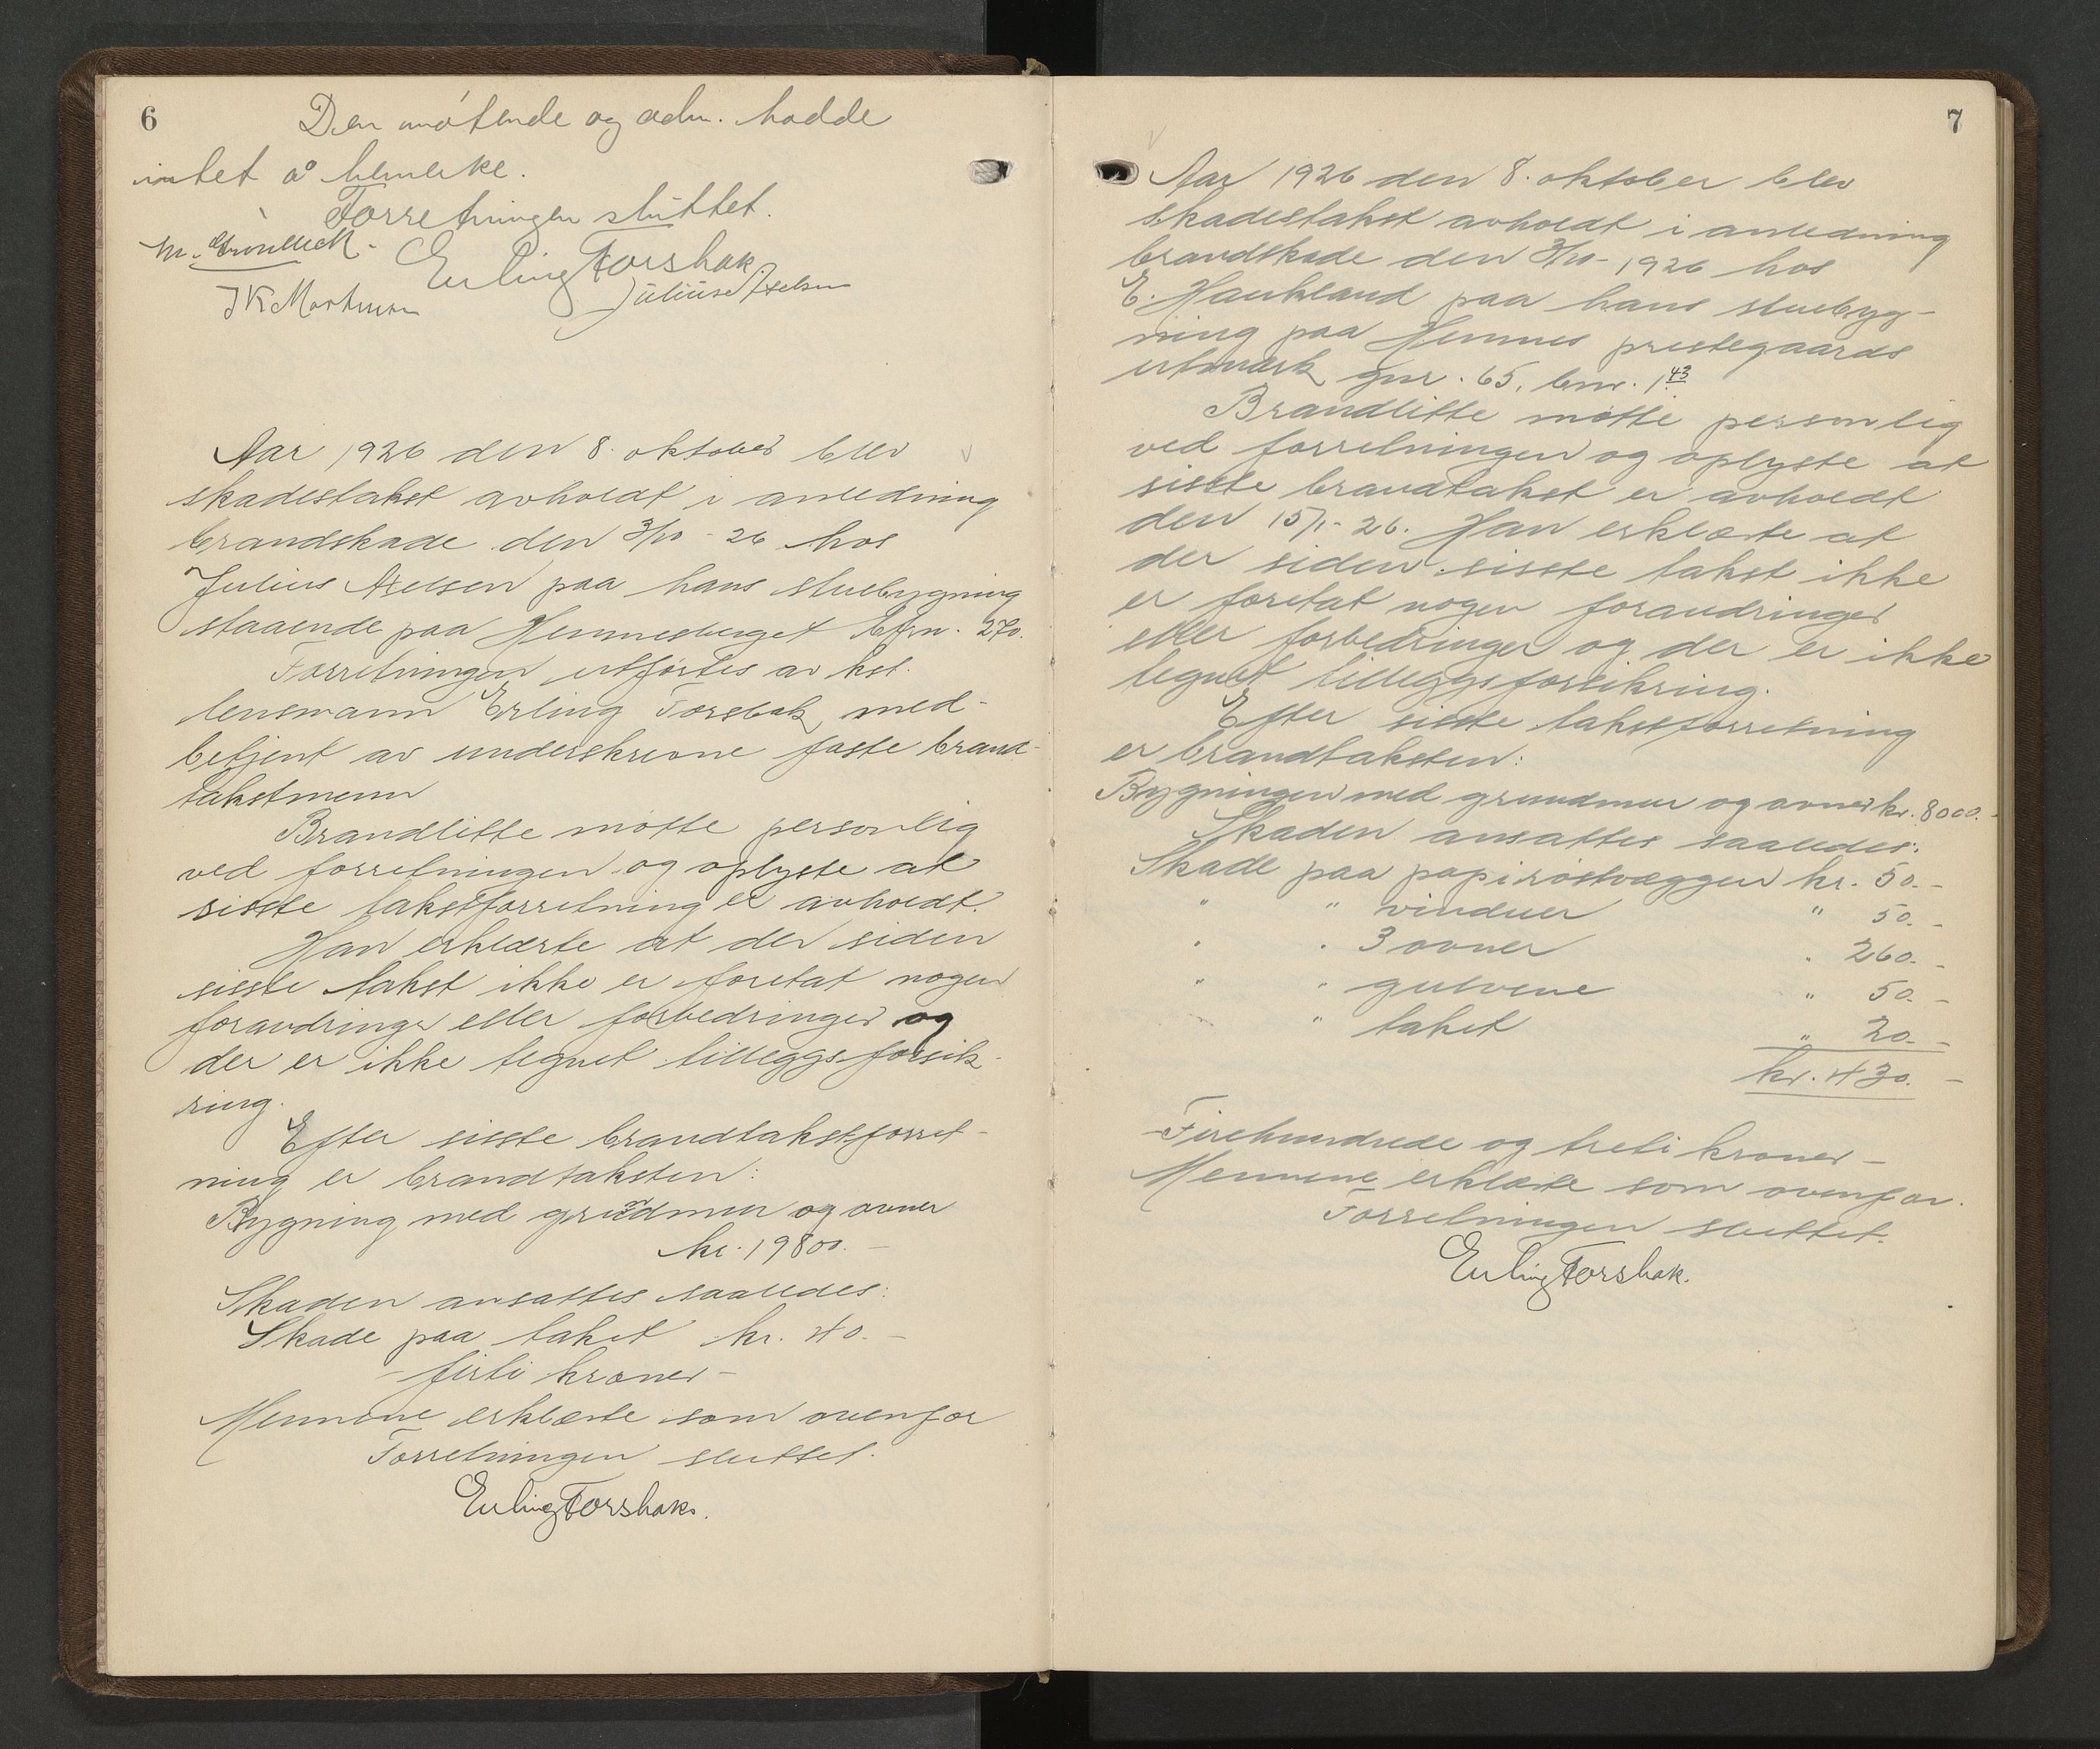 6
Den møtende og adm. hadde
intet å bemerke.
Forretningen sluttet.
Erling Forsbak.
J K Mortensen
Julius Axelsen
Aar 1926 den 8. oktober blev
skadestakst avholdt i anledning
brandskade den 3/10 - 26 hos
Julius Axelsen paa hans stuebygning
staaende paa Hemnesberget br.n. 270.
Forretningen utførtes av kst.
lensmann Erling Forsbak med-
betjent av underskrevne faste brand-
takstmenn
Brandlitte møtte personlig
ved forretningen og oplyste at
sisste takstforretning er avholdt.
Han erklærte at der siden
sisste takst ikke er foretat nogen
forandringer eller forbedringer og
der er ikke tegnet tilleggsforsik-
ring.
Efter sisste brandtakstforret-
ning er brandtaksten:
Bygning med grundmur og ovner
kr. 19800.-
Skaden ansattes saaledes:
Skade paa taket kr. 40.-
- firti kroner -
Mennene erklærte som ovenfor
Forretningen sluttet.
Erling Forsbak.
7
Aar 1926 den 8. oktober blev
skadestakst avholdt i anledning
brandskade den 3/10 - 1926 hos
E. Haukland paa hans stuebyg-
ning paa Hemnes prestegaards
utmark gnr. 65, bnr. 1 43
Brandlitte møtte personlig
ved forretningen og oplyste at
sisste brandtakst er avholdt
den 15/1 - 26. Han erklærte at
der siden sisste takst ikke
er foretat nogen forandringer
eller forbedringer og der er ikke
tegnet tilleggsforsikring.
Efter sisste takstforretning
er brandtaksten:
Bygningen med grundmur og ovner kr. 8000.-
Skaden ansattes saaledes:
Skade paa papirøstvæggen kr. 50.-
" " vinduer " 50.-
" " 3 ovner " 260.-
" " gulvene " 50.-
" " taket " 20.-
kr. 430.-
- Firehundrede og treti kroner -
Mennene erklærte som ovenfor.
Forretningen sluttet.
Erling Forsbak.